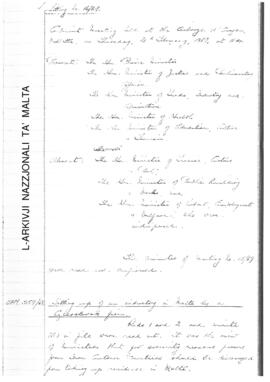 Sitting No. 16/69.
Cabinet Meeting held at the Auberge d'Aragon,
Valletta on Thursday, February, 1969, at
Present: The Hon. Prime Minister
The Hon. Minister of Justice and Parliamentary
Affairs
The Hon. Minister of Trade, Industry and
Agriculture
The Hon. Minister of Health
The Hon. Minister of Education, Culture
& Tourism
Absent: The Hon. Minister of Finance, Customs
& Port
The Hon. Minister of Public Building
& Works and
The Hon. Minister of Labour, Employment
& Welfare who were
indisposed.
The minutes of meeting No. 15/69
were read and approved.
L-ARKIVJI NAZZJONALI TA' MALTA
Setting up of an industry in Malta by a
firm
Reds 1 and 2 and minute
in file were read out. It was the view
of Ministers that for security reasons persons
from Iron Curtain Countries should be discouraged
from taking up residence in Malta.